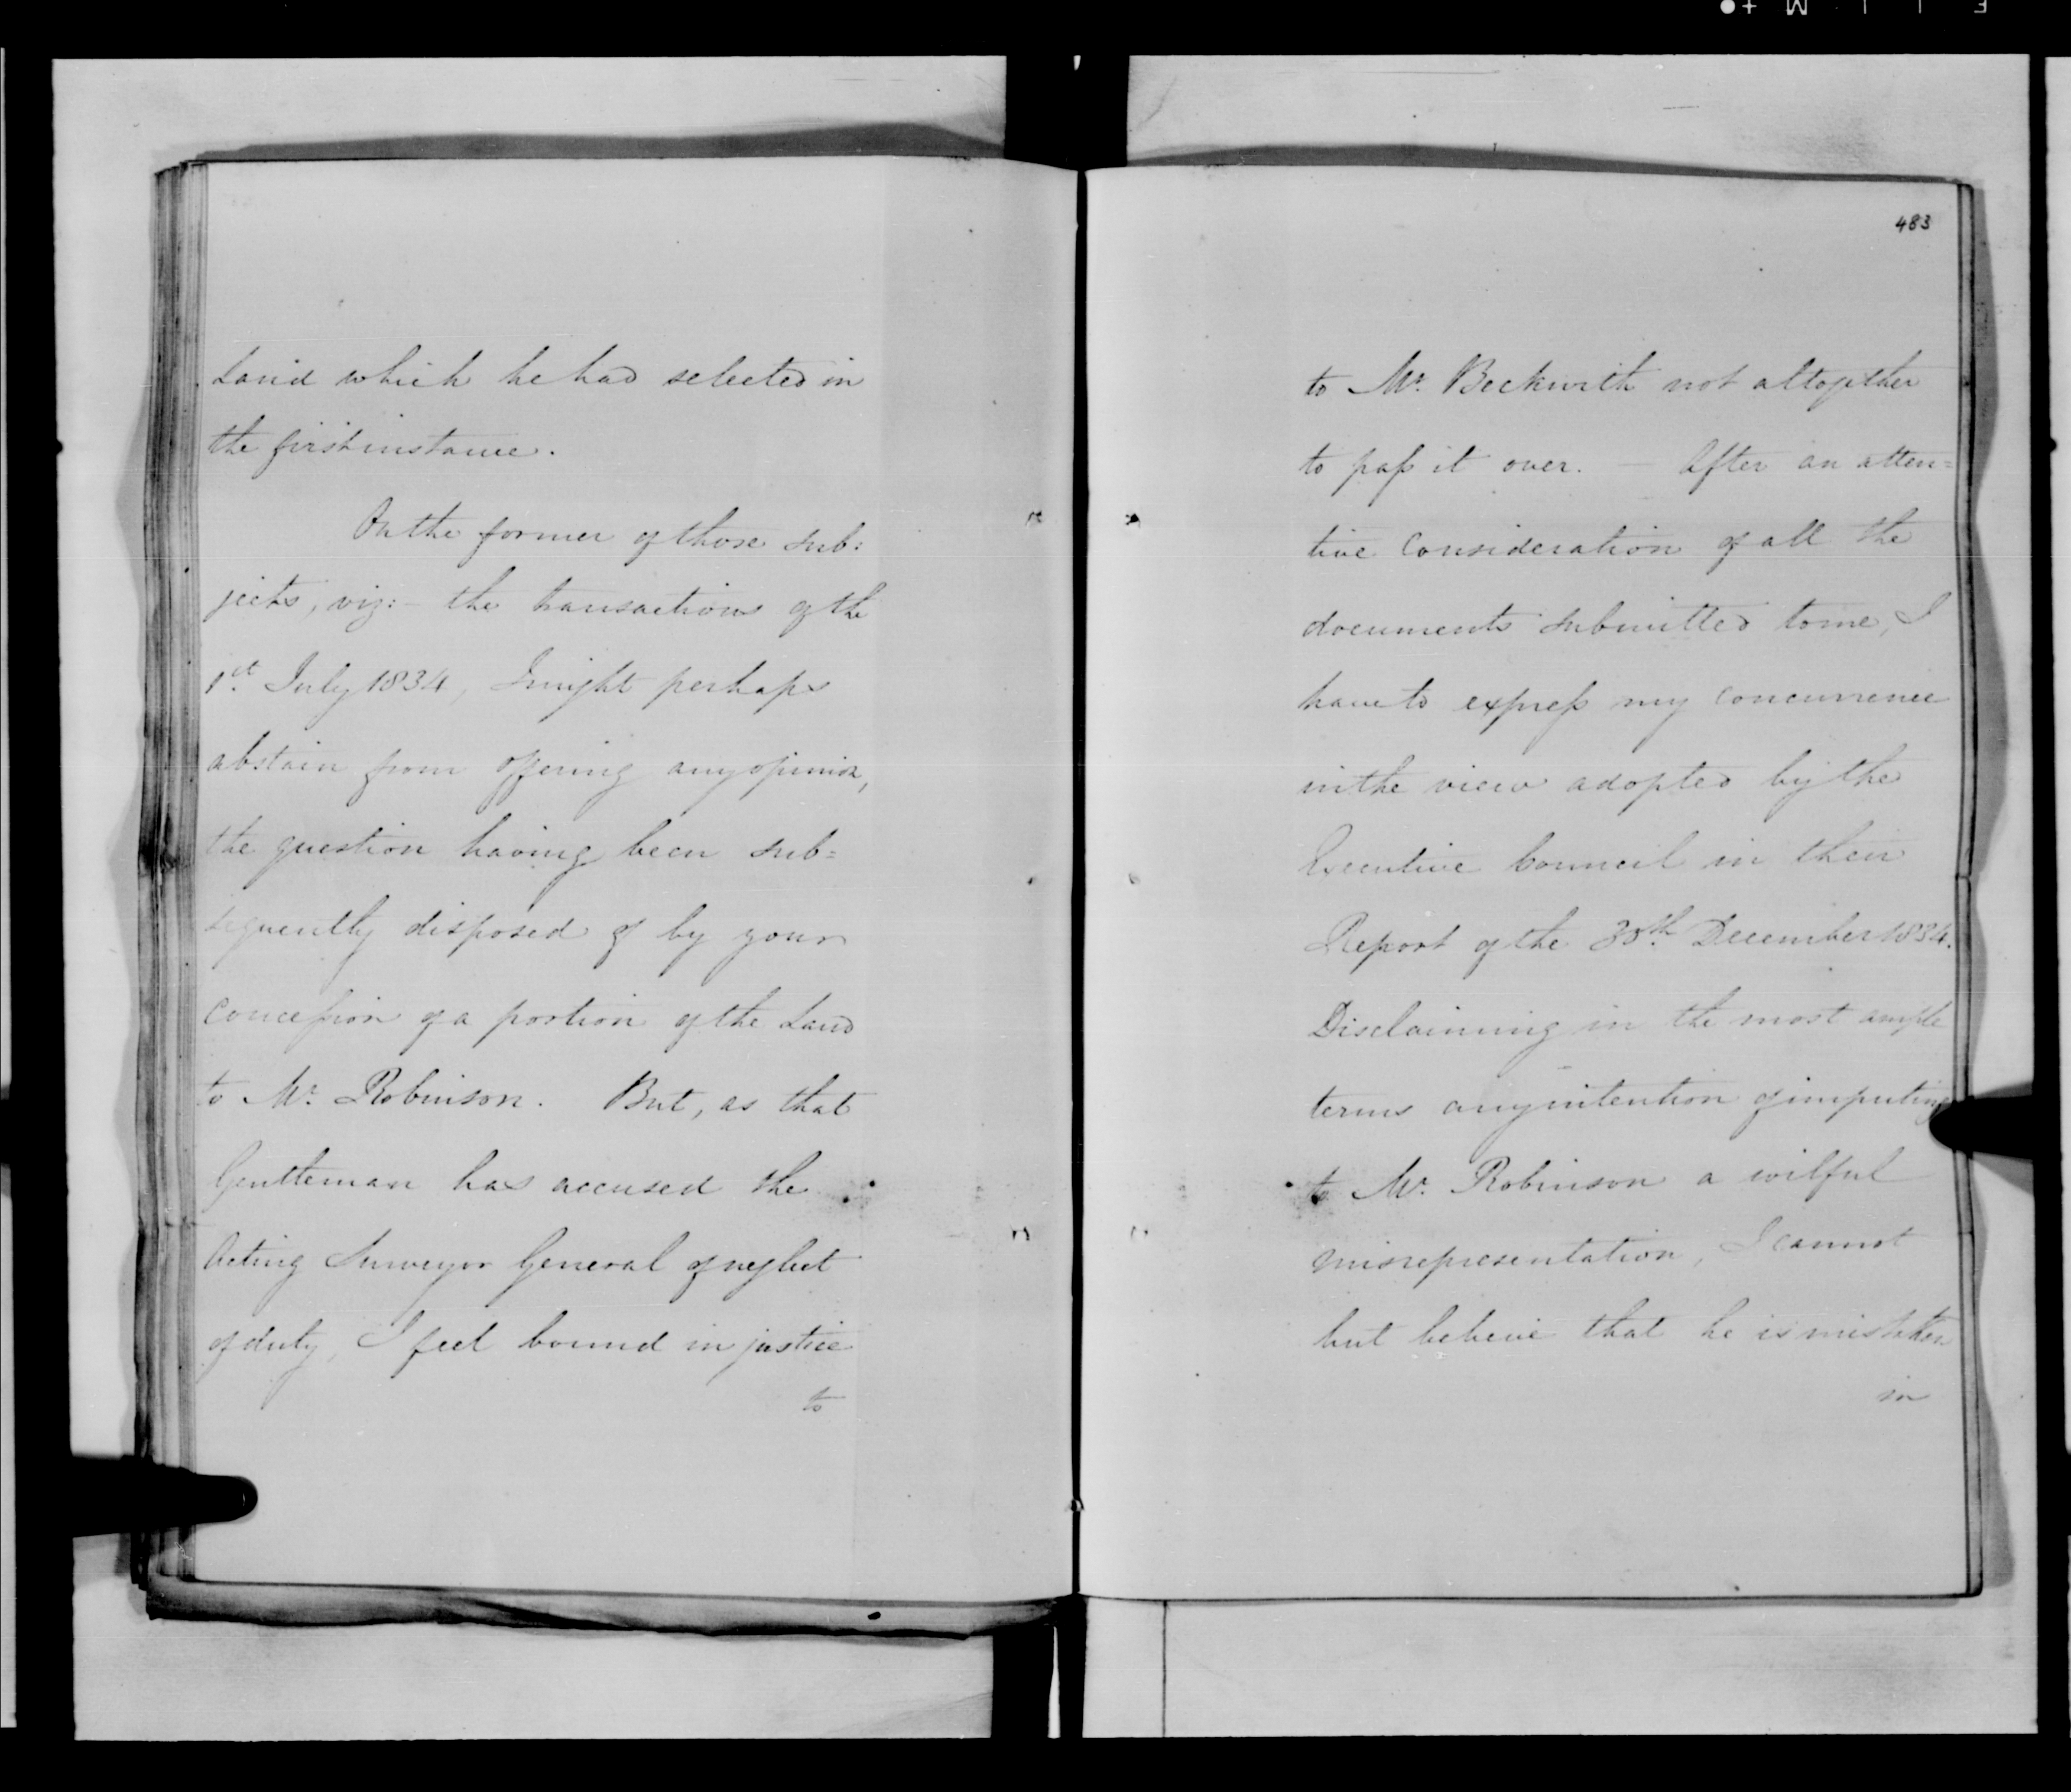 Land which he had selected in
the first instance.
On the former of those sub:
jects, viz:- the transactions of the
1st July 1834, I might perhaps
abstain from offering any opinion,
the question having been sub=
sequently disposed of by your
concession of a portion of the Land
to Mr. Robinson. But, as that
Gentleman has accused the
Acting Surveyor General of neglect
of duty, I feel bound in justice
to
483
to Mr. Beckwith not altogether
to pass it over. — After an atten=
tive Consideration of all the
documents submitted to me, I
have to express my concurrence
in the view adopted by the
Executive Council in their
Report of the 30th December 1834.
Disclaiming in the most ample
terms any intention of imputing
to Mr. Robinson a wilful
misrepresentation, I cannot
but believe that he is mistaken
in